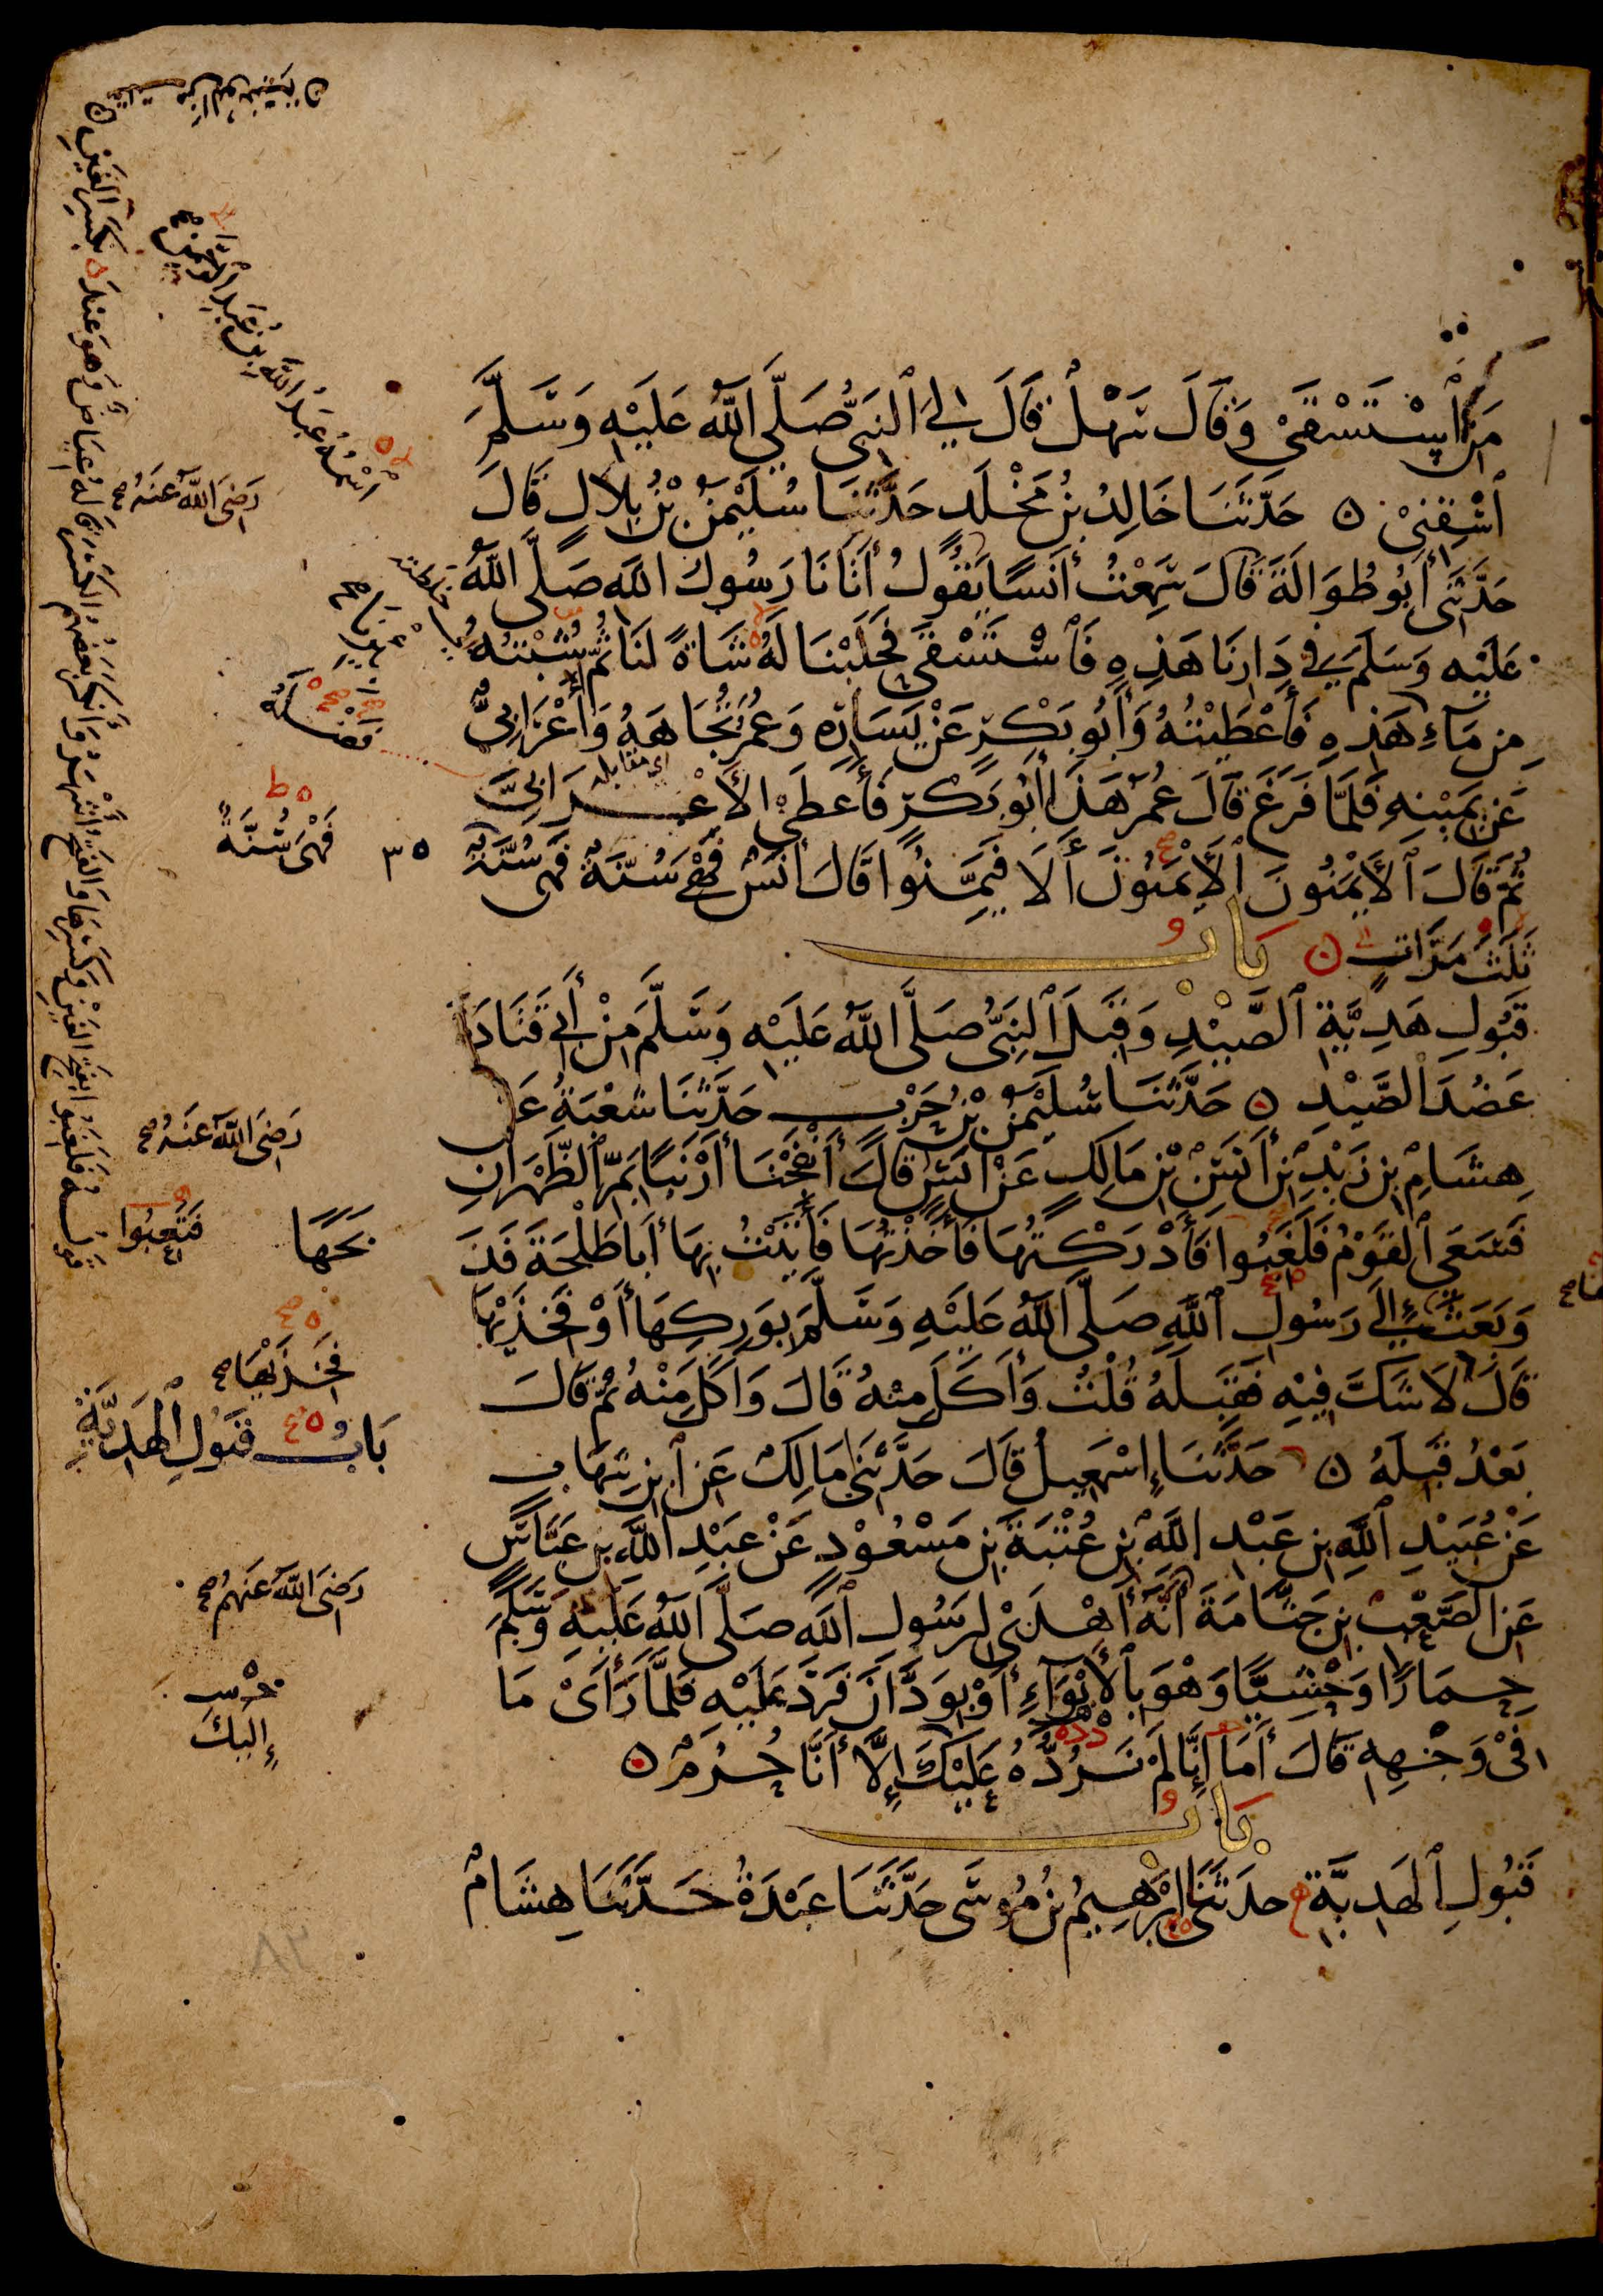 مَنِ ٱسْتَسْقَىٰ وَقَالَ سَهْلٌ قَالَ لِيَ ٱلنَّبِيُّ صَلَّى اللَّهُ عَلَيْهِ وَسَلَّمَ
ٱسْقِنِىْ ۞ حَدَّثَنَا خَالِدُ بْنُ مَخْلَدٍ حَدَّثَنَا سُلَيْمٰنُ بْنُ بِلَالٍ قَالَ
حَدَّثَنِى أَبُو طُوَالَةَ قَالَ سَمِعْتُ أَنَسًا يَقُولُ أَتَانَا رَسُولُ اللَّهِ صَلَّى اللَّهُ
عَلَيْهِ وَسَلَّمَ فِي دَارِنَا هَذِهِ فَٱسْتَسْقَى فَحَلَبْنَا لَهُ شَاةً لَنَا ثُمَّ شُبْتُهُ
مِن مَآءِ هَذِهِ فَأَعْطَيْتُهُ وَأَبُو بَكْرٍ عَنْ يَسَارِهِ وَعُمَرُ تُجَاهَهُ وَأَعْرَابِيٌّ
اى مقابله
عَنْ يَمِيْنِهِ فَلَمَّا فَرَغَ قَالَ عُمَرُ هَذَا أَبُو بَكْرٍ فَأَعْطَى الأَعْرَابِيَّ
ثُمَّ قَالَ ٱلأَيْمَنُونَ ٱلأَيْمَنُونَ أَلَا فَيَمِّنُوا قَالَ أَنَسٌ فَهْىَ سُنَّةٌ فَهْىَ سُنَّةٌ
ثَلٰثَ مَرَّاتٍ ۞ بَابُ
قَبُولِ هَدِيَّةِ ٱلصَّيْدِ وَقَبِلَ ٱلنَّبِيُّ صَلَّى اللَّهُ عَلَيْهِ وَسَلَّمَ مِنْ أَبِي قَتَادَةَ
عَضُدَ ٱلصَّيْدِ ۞ حَدَّثَنَا سُلَيْمٰنُ بْنُ حَرْبٍ حَدَّثَنَا شُعْبَةُ عَنْ
هِشَامِ بْنِ زَيْدِ بْنِ أَنَسِ بْنِ مَالِكٍ عَنْ أَنَسٍ قَالَ أَنْفَجْنَا أَرْنَبًا بِمَرِّ ٱلظَّهْرَانِ
فَسَعَى ٱلْقَوْمُ فَلَغَبُوا فَأَدْرَكْتُهَا فَأَخَذْتُهَا فَأَتَيْتُ بِهَا أَبَا طَلْحَةَ فَذَ
وَبَعَثَ إِلَى رَسُولِ ٱللَّهِ صَلَّى اللَّهُ عَلَيْهِ وَسَلَّمَ بِوَرِكِهَا أَوْ فَخِذَيْهَا
قَالَ لَا شَكَّ فِيْهِ فَقَبِلَهُ قُلْتُ وَأَكَلَ مِنْهُ قَالَ وَأَكَلَ مِنْهُ ثُمَّ قَالَ
بَعْدُ قَبِلَهُ ۞ حَدَّثَنَا إِسْمٰعِيلُ قَالَ حَدَّثَنِى مَالِكٌ عَنِ ٱبْنِ شِهَابٍ
عَنْ عُبَيْدِ ٱللَّهِ بْنِ عَبْدِ اللَّهِ بْنِ عُتْبَةَ بْنِ مَسْعُوْدٍ عَنْ عَبْدِ ٱللَّهِ بْنِ عَبَّاسٍ
عَنِ ٱلصَّعْبِ بْنِ جَثَّامَةَ أَنَّهُ أَهْدَىٰ لِرَسُولِ ٱللَّهِ صَلَّى اللَّهُ عَلَيْهِ وَسَلَّمَ
حِمَارًا وَحْشِيًّا وَهْوَ بِٱلأَبْوَآءِ أَوْ بِوَدَّانَ فَرَدَّ عَلَيْهِ فَلَمَّا رَأَىٰ مَا
فِىْ وَجْهِهِ قَالَ أَمَا إِنَّا لَمْ نَرُدَّهُ عَلَيْكَ إِلَّا أَنَّا حُرُمٌ ۞
بَابُ
قَبُولِ ٱلْهَدِيَّةِ حَدَّثَنِى إِبْرٰهِيمُ بْنُ مُوسَى حَدَّثَنَا عَبْدَةُ حَدَّثَنَا هِشَامٌ
ٱسْمُهُ عَبْدُ اللَّهِ بْنُ عَبْدِ ٱلرَّحْمٰنِ
رَضِىَ اللَّهُ عَنْهُ صح
فَهْىَ سُنَّةٌ
رَضِىَ اللَّهُ عَنْهُ صح
فَتَعِبُوا
بَحَهَا
فَخِذَيْهَا صح
بَابُ قَبُولِ ٱلْهَدِيَّةِ
رَضِىَ اللَّهُ عَنْهُمْ صح
إِلَيْكَ